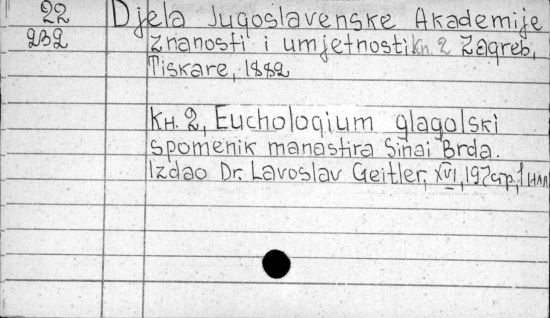 22 Djela Jugoslavenske Akademije
232 znanosti i umjetnosti kn. 2 Zagreb,
Tiskare, 1882
Кн. 2, Euchologium glagolski
spomenik manastira Sinai Brda.
Izdao Dr. Lavoslav Geitler, XVI, 197 стр., 1